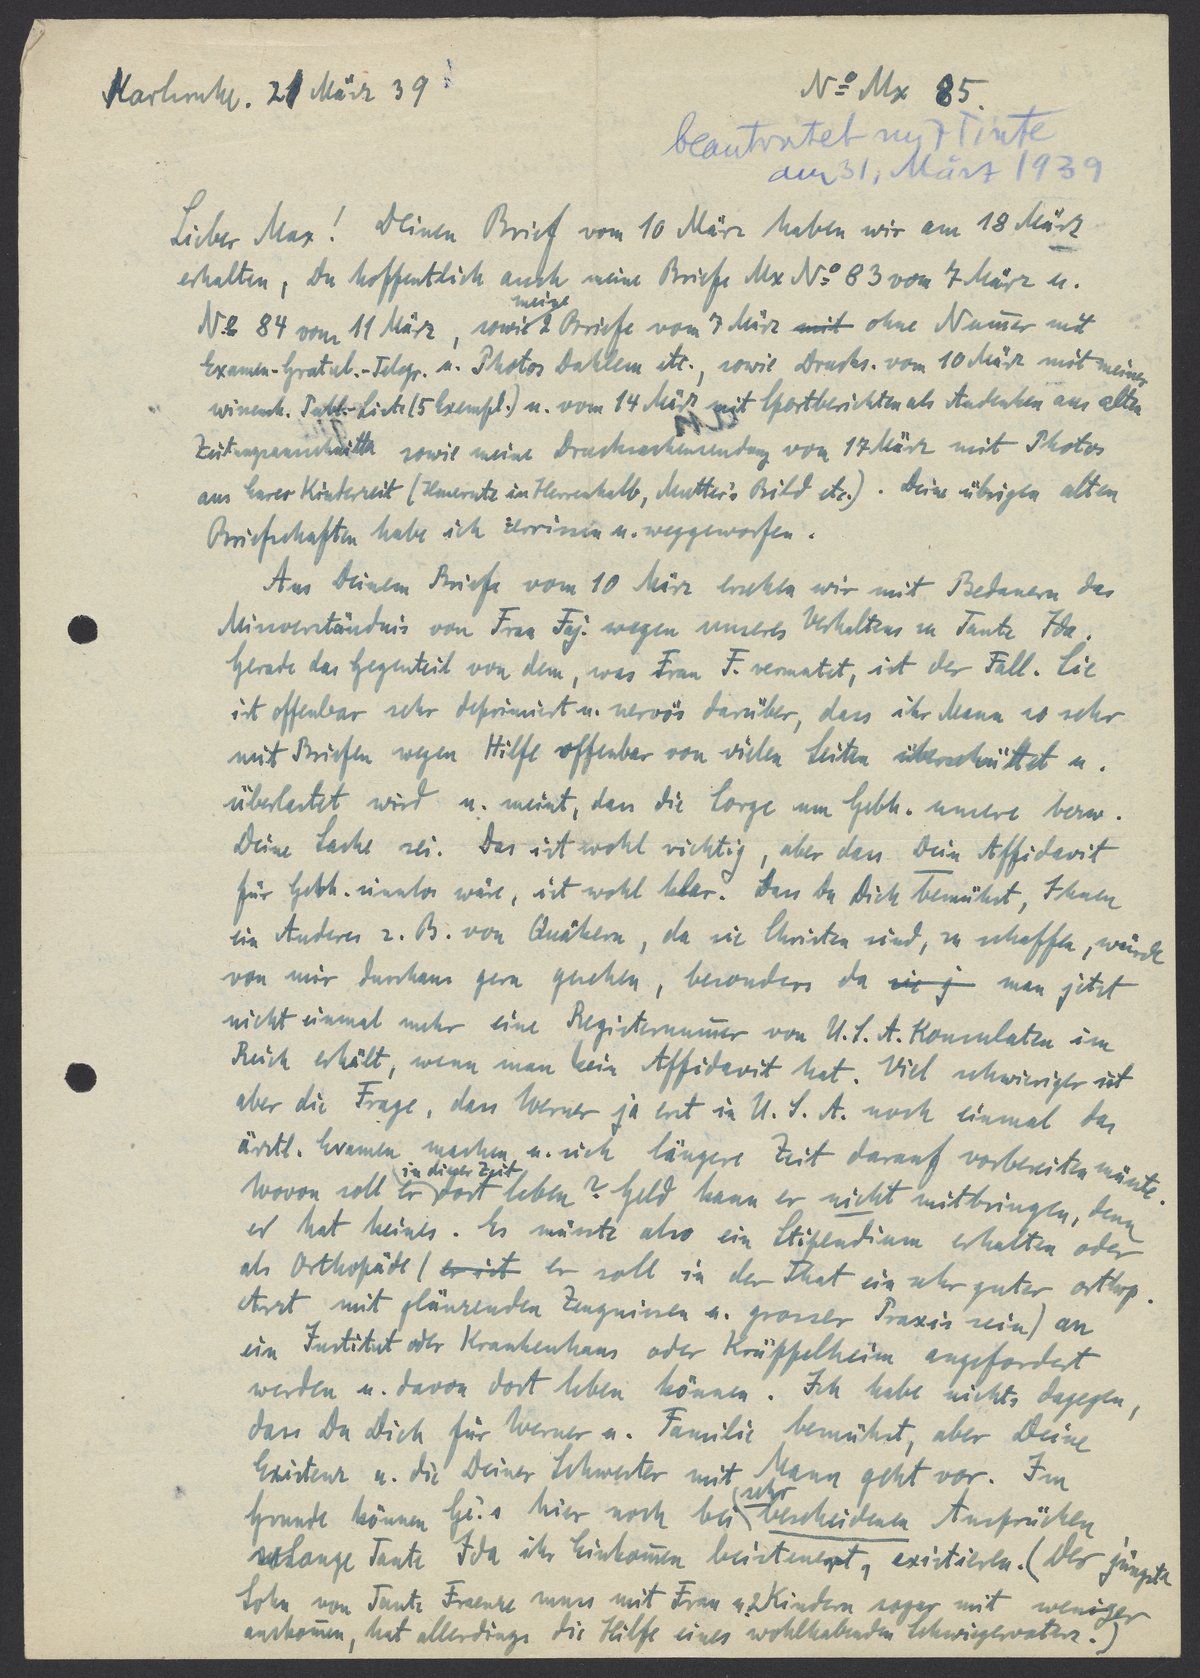 Karlsruhe. 21 März 39
No Mx 85.
beantwortet mit Tinte
am 31. März 1939
Lieber Max! Deinen Brief vom 10 März haben wir am 18 März
erhalten, Du hoffentlich auch meine Briefe Mx No 83 vom 7 März u.
No 84 vom 11 März, sowie meine 2 Briefe vom 7 März mit ohne Nummer mit
Examen-Gratul.-Telegr. u. Photos Dahlem etc., sowie Drucks. vom 10 März mit meiner
wissensch. Publ.-Liste (5 Exempl.) u. vom 14 März mit Sportberichten als Andenken aus alten
Zeitungsausschnitte sowie meine Drucksachensendung vom 17 März mit Photos
aus Eurer Kinderzeit ( in Herrenhalb, Mutter's Bild etc.). Deine übrigen alten
Briefschaften habe ich zerrissen u. weggeworfen.
Aus Deinem Briefe vom 10 März ersehen wir mit Bedauern das
Missverständnis von Frau Faj. wegen unseres Verhaltens zu Tante Ida.
Gerade das Gegenteil von dem, was Frau F. vermutet, ist der Fall. Sie
ist offenbar sehr deprimiert u. nervös darüber, dass ihr Mann so sehr
mit Briefen wegen Hilfe offenbar von vielen Seiten überschüttet u.
überlastet wird u. meint, dass die Sorge um Gebh. unsere bezw.
Deine Sache sei. Das ist wohl richtig, aber dass Dein Affidavit
für Gebh. sinnlos wäre, ist wohl klar. Dass Du Dich bemühst, Ihnen
ein Anderes z. B. von Quäkern, da sie Christen sind, zu schaffen, würde
von mir durchaus gern gesehen, besonders da sie j man jetzt
nicht einmal mehr eine Registernummer von U.S.A. Konsulaten im
Reich erhält, wenn man kein Affidavit hat. Viel schwieriger ist
aber die Frage, dass Werner ja erst in U.S.A. noch einmal das
ärztl. Examen machen u. sich längere Zeit darauf vorbereiten müsste.
Wovon soll er (in dieser Zeit) dort leben? Geld kann er nicht mitbringen, denn
er hat keines. Es müsste also ein Stipendium erhalten oder
als Orthopäde (er ist er soll in der That ein sehr guter orthop.
Arzt mit glänzenden Zeugnissen u. grosser Praxis sein) an
ein Institut oder Krankenhaus oder Krüppelheim angefordert
werden u. davon dort leben können. Ich habe nichts dagegen,
dass Du Dich für Werner u. Familie bemühst, aber Deine
Existenz u. die Deiner Schwester mit Mann geht vor. Im
Grunde können Ge.'s hier noch bei (sehr) bescheidenen Ansprüchen
solange Tante Ida ihr Einkommen beisteuert, existieren. (Der jüngste
Sohn von Tante Fraenze muss mit Frau u. 2 Kindern sogar mit weniger
auskommen, hat allerdings die Hilfe eines wohlhabenden Schwiegervaters.)